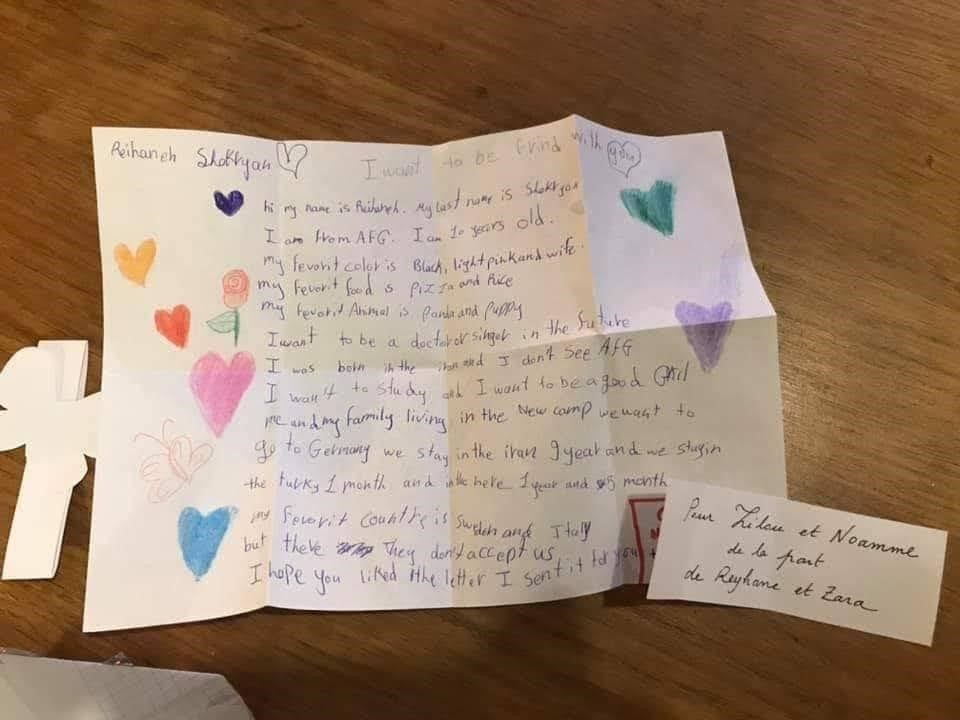 Reihaneh Shokryan
I want to be frind with you
hi my name is Reihaneh. My last name is Shokryan
I am from AFG. I am 10 years old.
my fevorit color is Black, light pink and wife.
my fevorit food is pizza and Rice
my fevorit Animal is panda and puppy
I want to be a doctor or singer in the future
I was born in the iran and I don't see AFG
I want to study and I want to be a good
me and my family living in the New camp we want to
go to Germany we stay in the iran 9 year and we stay in
the turky 1 month and in the here 1 year and 5 month
my fevorit countre is Sweden and Italy
but there They don't accept us
I hope you liked the letter I sent it to you
Pour Lilou et Noamme
de la part
de Reyhane et Zara